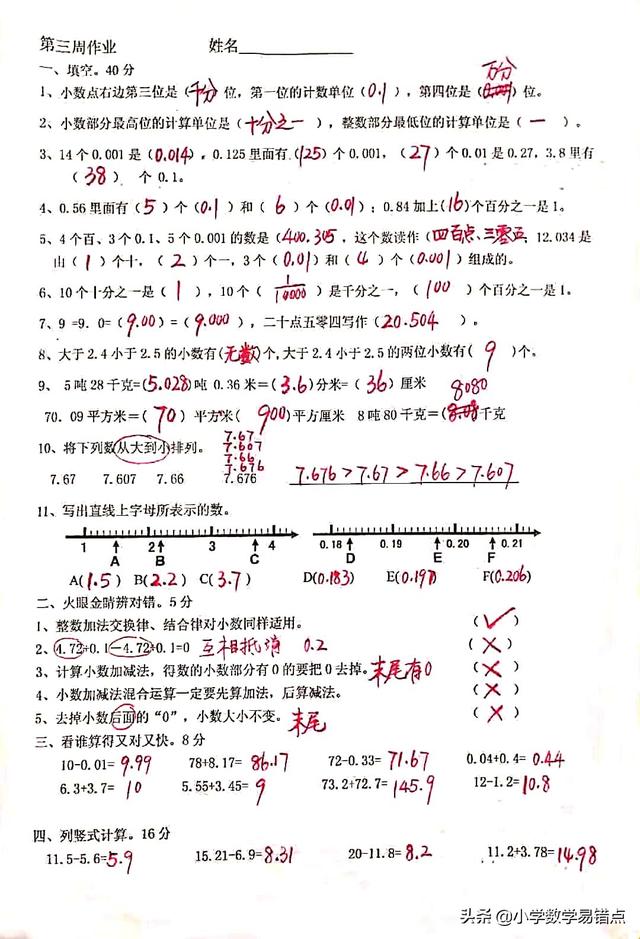 第三周作业 姓名
一、填空。40分
万分
1、小数点右边第三位是(千分)位，第一位的计数单位(0.1)，第四位是( )位。
2、小数部分最高位的计算单位是(十分之一)，整数部分最低位的计算单位是(一)。
3、14个0.001是(0.014)。0.125里面有(125)个0.001，(27)个0.01是0.27，3.8里有
(38) 个0.1。
4、0.56里面有(5)个(0.1)和(6)个(0.01)；0.84加上(16)个百分之一是1。
5、4个百、3个0.1、5个0.001的数是(400.305，这个数读作(四百点、三零五；12.034是
由(1)个十，(2)个一，3个(0.01)和(4)个(0.001)组成的。
6、10个十分之一是(1)，10个(1/10000)是千分之一，(100)个百分之一是1。
7、9=9.0=(9.00)=(9.000)，二十点五零四写作(20.504)。
8、大于2.4小于2.5的小数有(无数)个,大于2.4小于2.5的两位小数有(9)个。
9、5吨28千克=(5.028)吨 0.36米=(3.6)分米=(36)厘米 8080
70.09平方米=(70)平方米(900)平方厘米 8吨80千克=( 千克
10、将下列数从大到小排列。
7.67
7.607
7.66
7.676
7.67 7.607 7.66 7.676 7.676>7.67>7.66>7.607
11、写出直线上字母所表示的数。
1 2 3 4 0.18 0.19 0.20 0.21
A B C D E F
A(1.5) B(2.2) C(3.7) D(0.183) E(0.197) F(0.206)
二、火眼金睛辨对错。5分
1、整数加法交换律、结合律对小数同样适用。 (✓)
2、4.72+0.1-4.72+0.1=0 互相抵消 0.2 (×)
3、计算小数加减法，得数的小数部分有0的要把0去掉。末尾有0 (×)
4、小数加减法混合运算一定要先算加法，后算减法。 (×)
5、去掉小数后面的“0”，小数大小不变。末尾 (×)
三、看谁算得又对又快。8分
10-0.01=9.99 78+8.17=86.17 72-0.33=71.67 0.04+0.4=0.44
6.3+3.7=10 5.55+3.45=9 73.2+72.7=145.9 12-1.2=10.8
四、列竖式计算。16分
11.5-5.6=5.9 15.21-6.9=8.31 20-11.8=8.2 11.2+3.78=14.98
头条@小学数学易错点